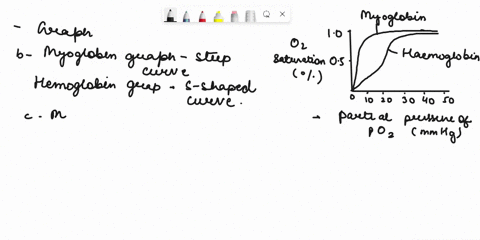 - Graph
b- Myoglobin graph - step
curve
Hemoglobin grap - S-shaped
curve.
c. M
Myoglobin
O2
Saturation
(%)
1.0
0.5
Haemoglobin
10 20 30 40 50
→ Partial pressure of
pO2 (mmHg)